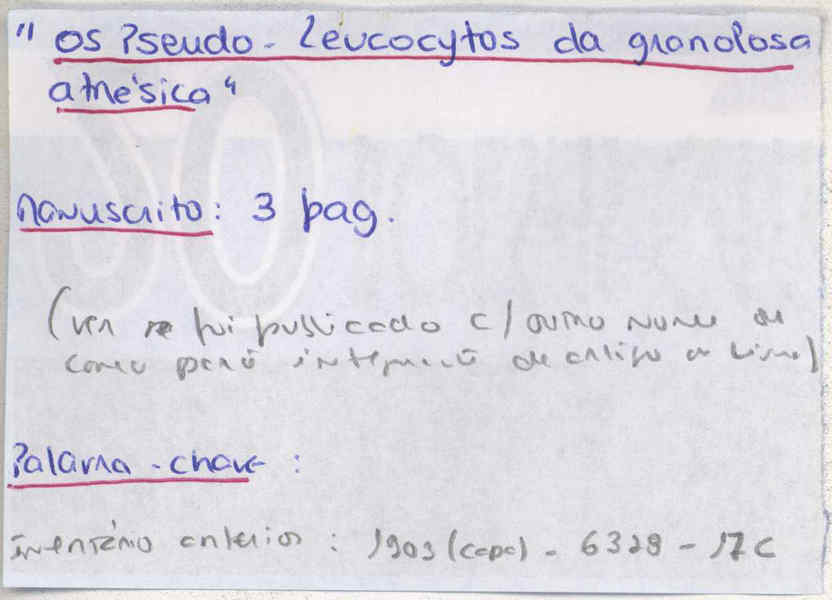 " os Pseudo - Leucocytos da granolosa
atrésica "
Manuscrito: 3 pag.
(ver se foi publicado c/ outro nome ou
como parte integrante de artigo ou livro)
Palavra - chave :
inventário anterior : 1903 (capa) - 6329 - 17 C